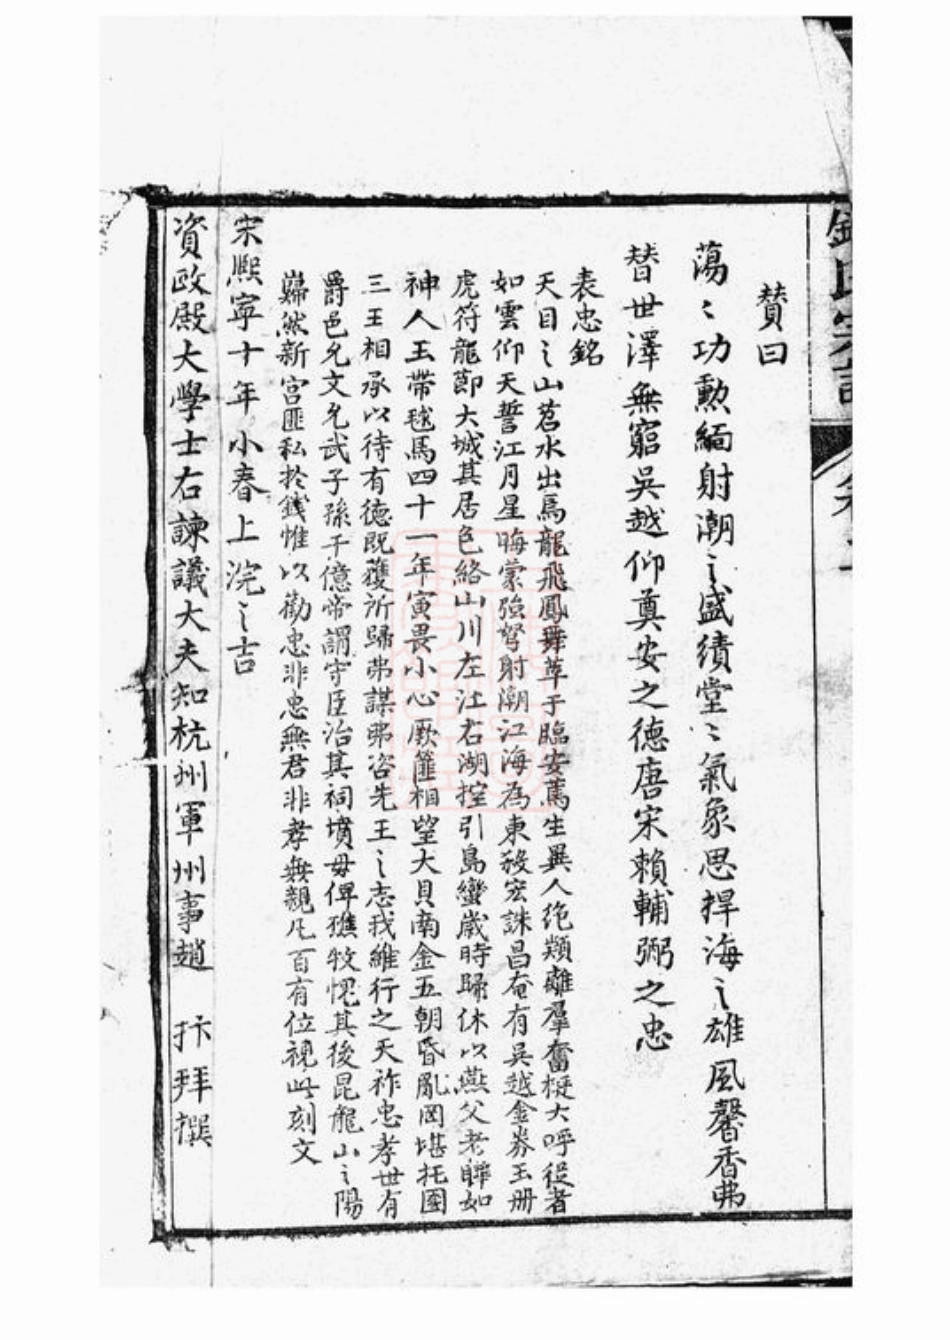 錢氏宗譜
卷之一
贊曰
蕩〻功勲緬射潮之盛績堂〻氣象思捍海之雄風馨香弗
替世澤無窮吳越仰奠安之德唐宋賴輔弼之忠
表忠銘
天目之山苕水出焉龍飛鳳舞萃于臨安篤生異人絶類離羣奮梃大呼從者
如雲仰天誓江月星晦蒙強弩射潮江海為東殺宏誅昌奄有吳越金券玉册
虎符龍節大城其居包絡山川左江右湖控引島蠻歲時歸休以燕父老曄如
神人玉帶毬馬四十一年寅畏小心厥篚相望大貝南金五朝昏亂罔堪托國
三王相承以待有德既獲所歸弗謀弗咨先王之志我維行之天祚忠孝世有
爵邑允文允武子孫千億帝謂守臣治其祠墳毋俾樵牧愧其後昆龍山之陽
巋然新宫匪私於錢惟以勸忠非忠無君非孝無親凡百有位視此刻文
宋熙寧十年小春上浣之吉
資政殿大學士右諫議大夫知杭州軍州事趙 抃拜撰